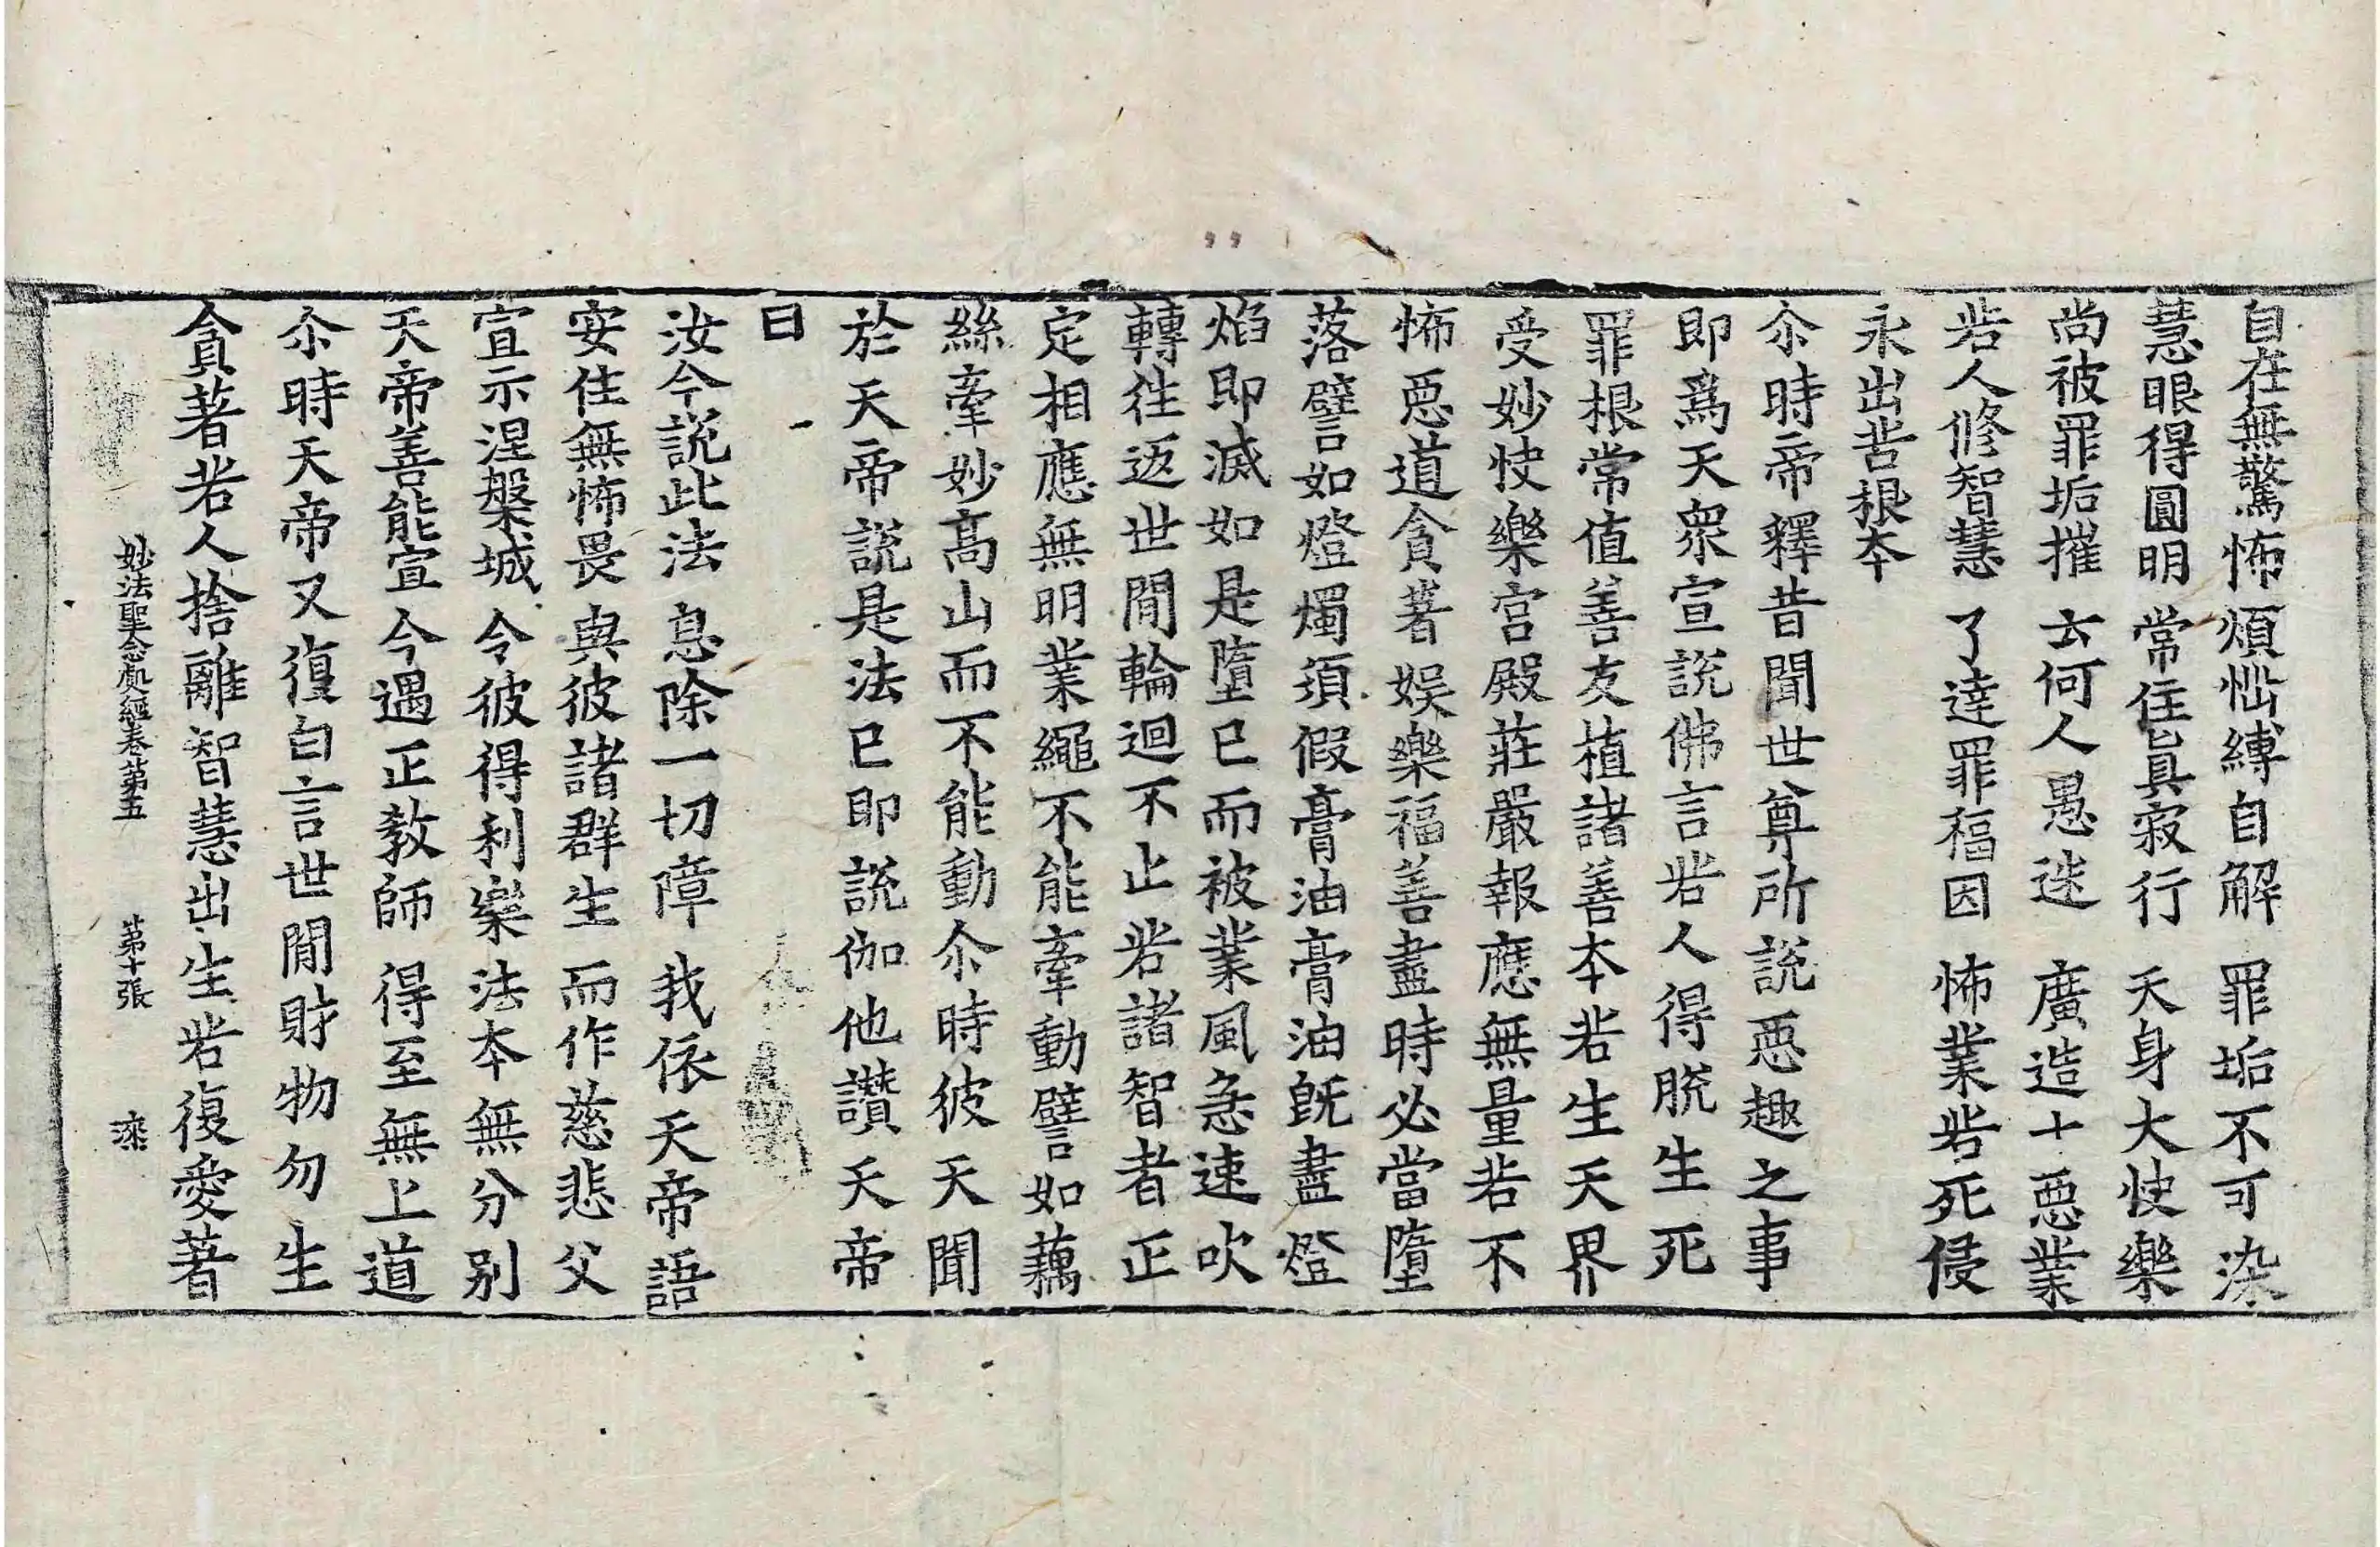 自在無驚怖 煩惱縛自解 罪垢不可染
慧眼得圓明 常住真寂行 天身大快樂
尚被罪垢摧 云何人愚迷 廣造十惡業
若人修智慧 了達罪福因 怖業苦死侵
永出苦根本
尒時帝釋昔聞世尊所說惡趣之事
即爲天衆宣說佛言若人得脫生死
罪根常值善友植諸善本若生天界
受妙快樂宮殿莊嚴報應無量若不
怖惡道貪著娛樂福善盡時必當墮
落譬如燈燭須假膏油膏油旣盡燈
焰即滅如是墮已而被業風急速吹
轉往返世間輪迴不止若諸智者正
定相應無明業繩不能牽動譬如藕
絲牽妙高山而不能動尒時彼天聞
於天帝說是法已即說伽他讚天帝
曰
汝今說此法 息除一切障 我依天帝語
安住無怖畏 與彼諸群生 而作慈悲父
宣示涅槃城 令彼得利樂 法本無分別
天帝善能宣 今遇正教師 得至無上道
尒時天帝又復白言世間財物勿生
貪著若人捨離智慧出生若復愛著
妙法聖念處經卷第五 第十張 漆